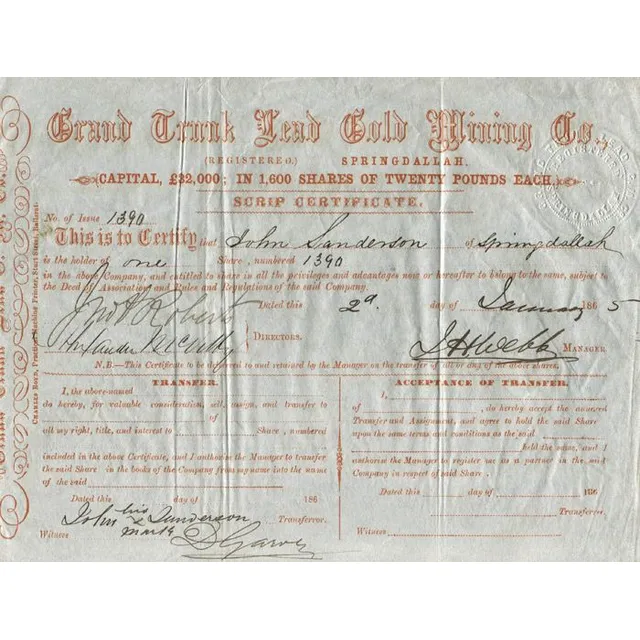 Grand Trunk Lead Gold Mining Co.,
(REGISTERED.) SPRINGDALLAH.
CAPITAL, £32,000; IN 1,600 SHARES OF TWENTY POUNDS EACH.
SCRIP CERTIFICATE.
No. of Issue 1390
This is to Certify that John Sanderson of Springdallah
is the holder of one Share, numbered 1390
in the above Company, and entitled to share in all the privileges and advantages now or hereafter to belong to the same, subject to
the Deed of Association and Rules and Regulations of the said Company.
Dated this 2d. day of January 1865
Jno A Roberts
DIRECTORS.
J H Webb MANAGER.
N.B.—This Certificate to be delivered to and retained by the Manager on the transfer of all or any of the above shares.
TRANSFER.
I, the above-named
do hereby, for valuable consideration, sell, assign, and transfer to
of
all my right, title, and interest to Share , numbered
included in the above Certificate, and I authorise the Manager to transfer
the said Share in the books of the Company from my name into the name
of the said
Dated this day of 186
John his x mark Sanderson Transferror.
Witness
ACCEPTANCE OF TRANSFER.
I,
of , do hereby accept the annexed
Transfer and Assignment, and agree to hold the said Share
upon the same terms and conditions as the said
held the same, and I
authorise the Manager to register me as a partner in the said
Company in respect of said Share .
Dated this day of 186
Transferree.
Witness